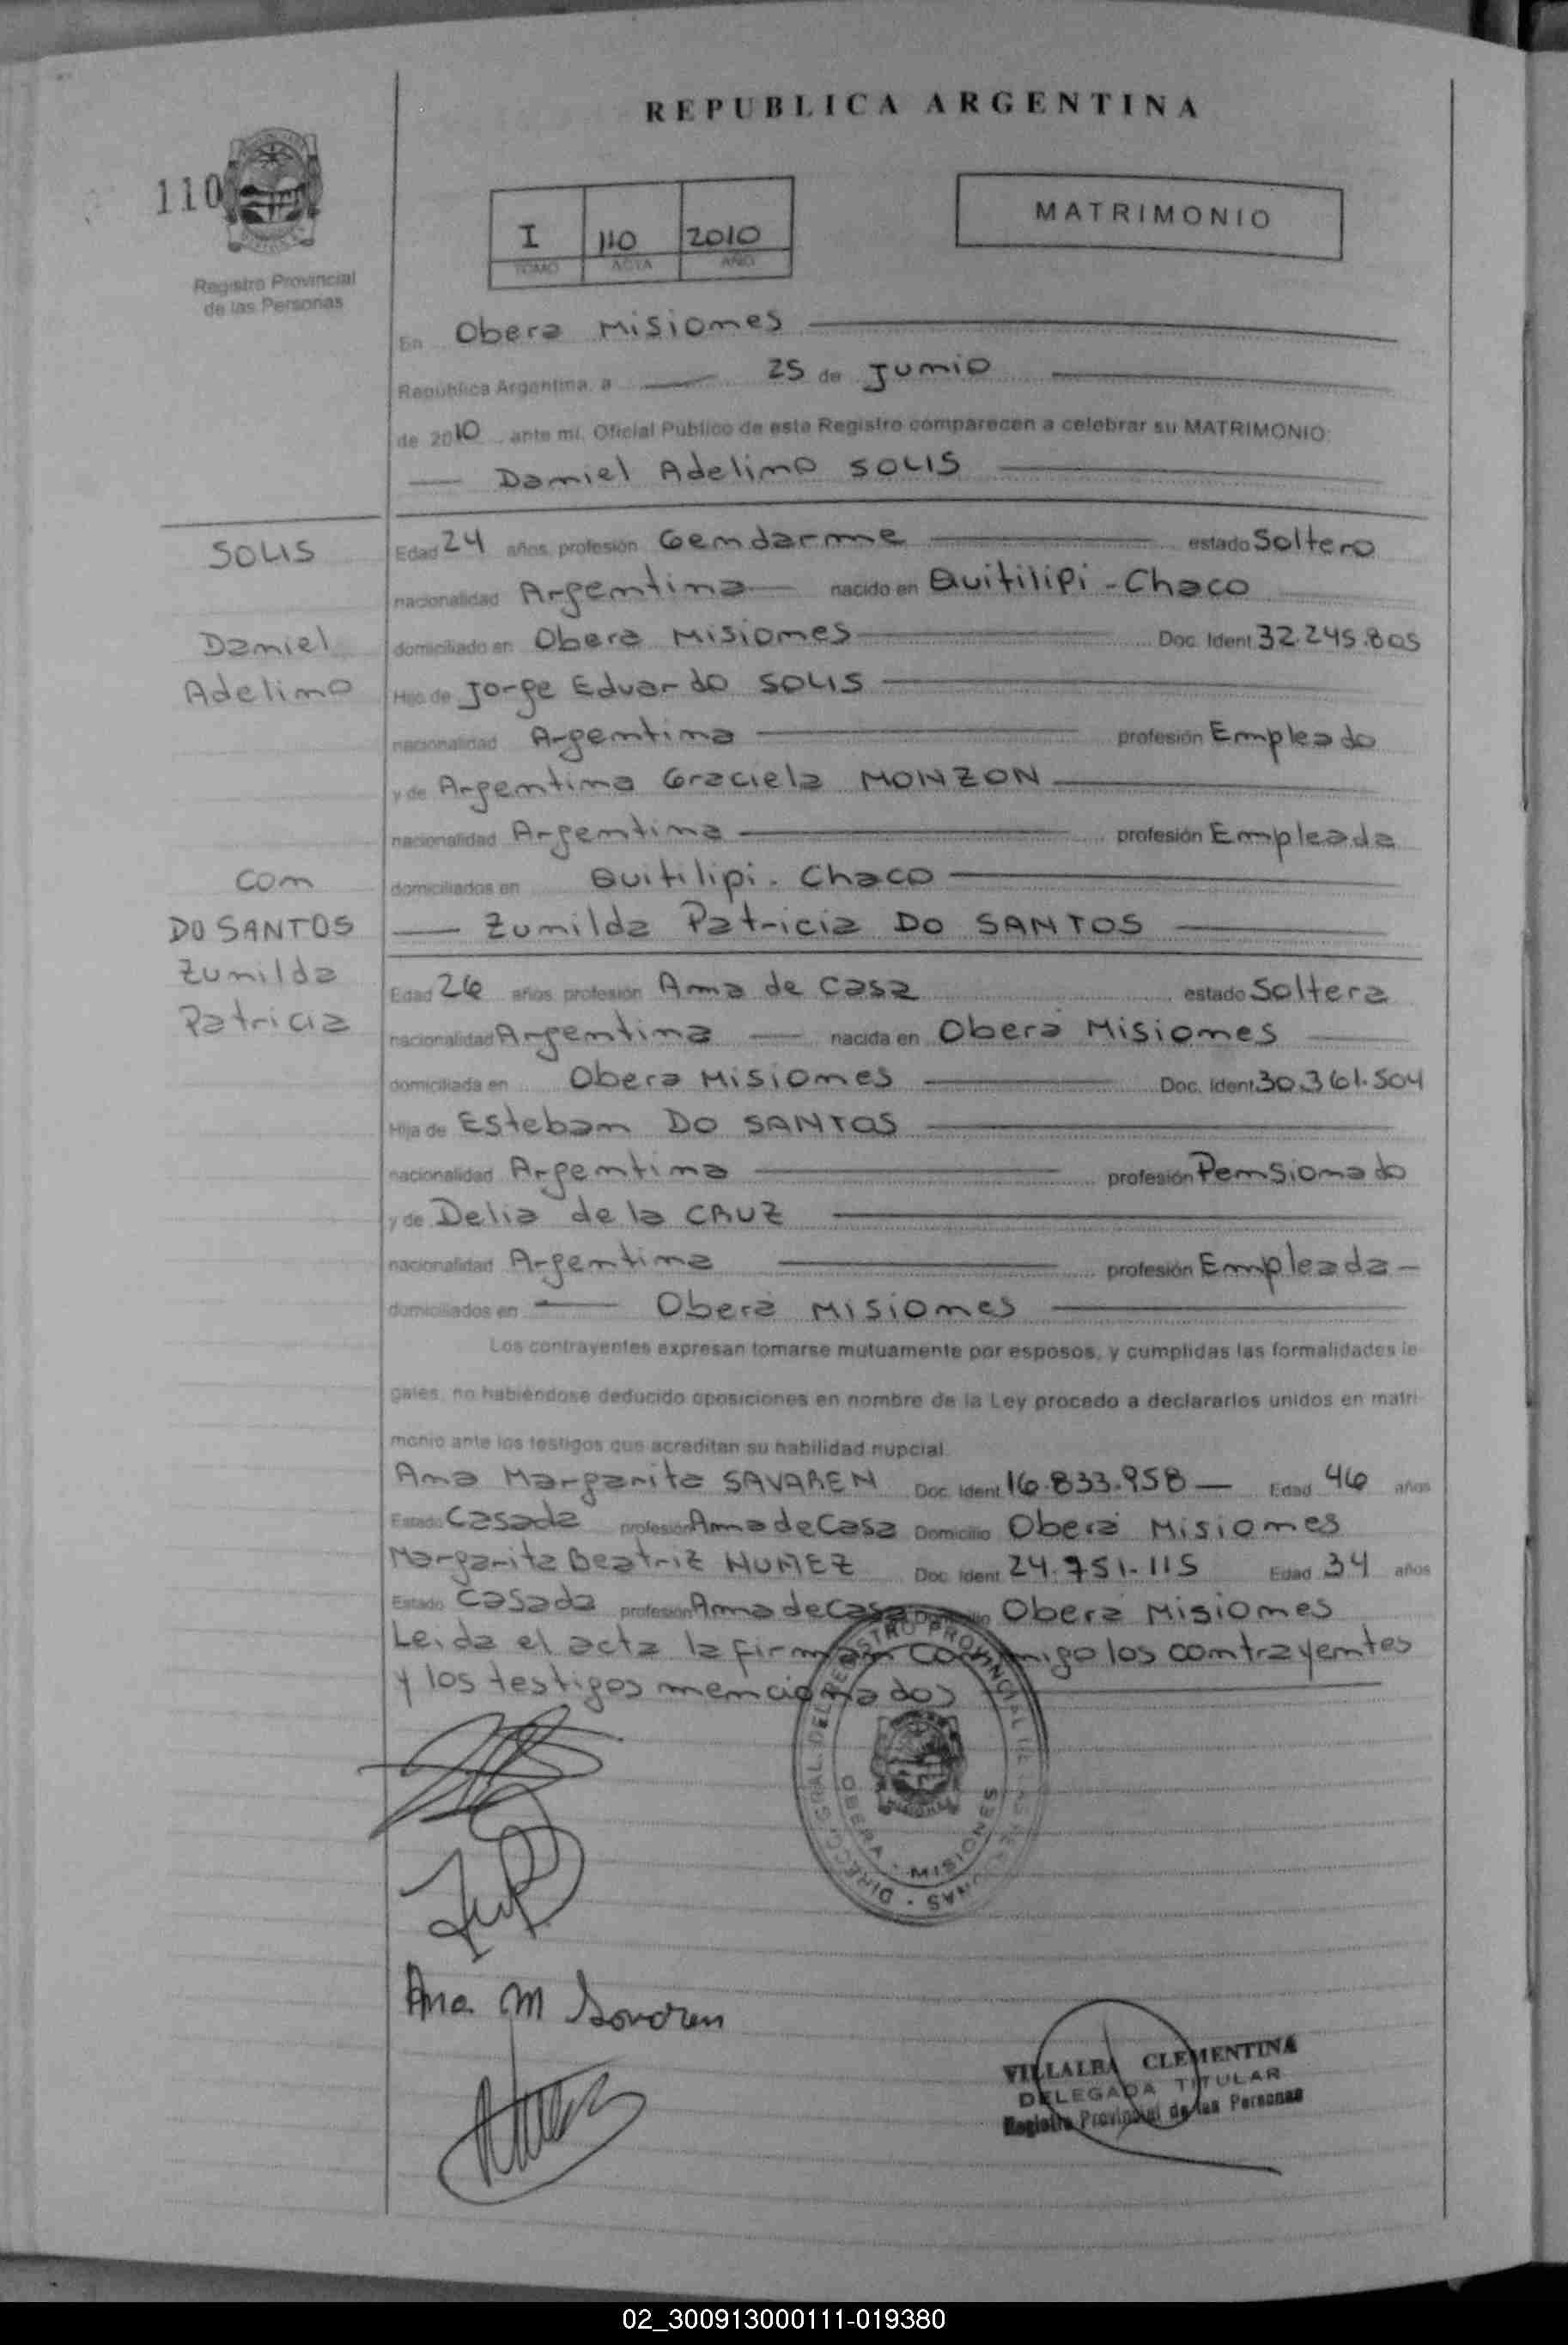 REPUBLICA ARGENTINA
110
Registro Provincial
de las Personas
I 110 2010
TOMO ACTA AÑO
MATRIMONIO
En Obera Misiones
República Argentina, a 25 de Junio
de 2010 ante mí, Oficial Público de este Registro comparecen a celebrar su MATRIMONIO:
Daniel Adelino SOLIS
SOLIS
Daniel
Adelino
Edad 24 años, profesión Gendarme estado Soltero
nacionalidad Argentina nacido en Quitilipi - Chaco
domiciliado en Obera Misiones Doc. Ident. 32.245.805
Hijo de Jorge Eduardo SOLIS
nacionalidad Argentina profesión Empleado
y de Argentina Graciela MONZON
nacionalidad Argentina profesión Empleada
domiciliados en Quitilipi - Chaco
con
DO SANTOS
Zunilda
Patricia
Zunilda Patricia DO SANTOS
Edad 26 años, profesión Ama de Casa estado Soltera
nacionalidad Argentina nacida en Obera Misiones
domiciliada en Obera Misiones Doc. Ident. 30.361.504
Hija de Esteban DO SANTOS
nacionalidad Argentina profesión Pensionado
y de Delia de la CRUZ
nacionalidad Argentina profesión Empleada -
domiciliados en Obera Misiones
Los contrayentes expresan tomarse mutuamente por esposos, y cumplidas las formalidades le-
gales, no habiéndose deducido oposiciones en nombre de la Ley procedo a declararlos unidos en matri-
monio ante los testigos que acreditan su habilidad nupcial.
Ana Margarita SAVAREN Doc. Ident. 16.833.958 Edad 46 años
Estado Casada profesión Ama de Casa Domicilio Obera Misiones
Margarita Beatriz NUÑEZ Doc. Ident. 24.751.115 Edad 34 años
Estado Casada profesión Ama de Casa Domicilio Obera Misiones
Leida el acta la firman conmigo los contrayentes
y los testigos mencionados
DIRECC. GRAL. DEL REGISTRO PROVINCIAL DE LAS PERSONAS
OBERA - MISIONES
Ana M Savaren
VILLALBA CLEMENTINA
DELEGADA TITULAR
Registro Provincial de las Personas
02_300913000111-019380